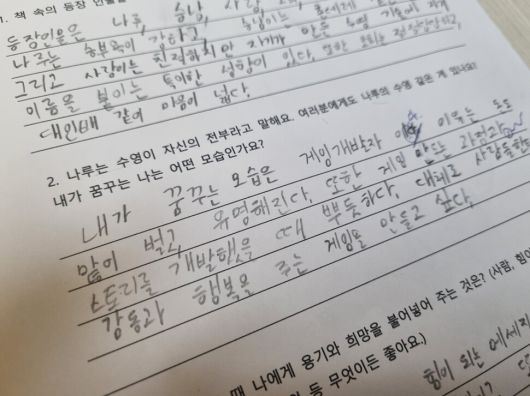 1. 책 속의 등장 인물
등장인물은 나루,
나루는 승부욕이 강하고,
그리고 사랑이는 친절하지만 자기가 만든 수영 기록에 자기
이름을 붙이는 특이한 성향이 있다. 또한
대인배 같이 마음이 넓다.
2. 나루는 수영이 자신의 전부라고 말해요. 여러분에게도 나루의 수영 같은 게 있나요?
내가 꿈꾸는 나는 어떤 모습인가요?
내가 꿈꾸는 모습은 게임개발자 이유는 돈도
많이 벌고, 유명해진다. 또한 게임 만드는 과정과
스토리를 개발했을 때 뿌듯하다. 대체로 사람들한테
감동과 행복을 주는 게임을 만들고 싶다.
때 나에게 용기와 희망을 불어넣어 주는 것은? (사람,
등 무엇이든 좋아요.)
힘이 되는 메세지